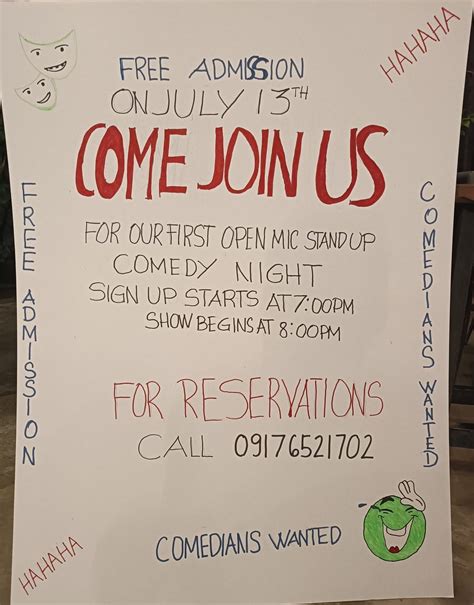 FREE ADMISSION
HAHAHA
ON JULY 13TH
COME JOIN US
FOR OUR FIRST OPEN MIC STAND UP
COMEDY NIGHT
SIGN UP STARTS AT 7:00PM
SHOW BEGINS AT 8:00PM
FREE ADMISSION
COMEDIANS WANTED
FOR RESERVATIONS
CALL 09176521702
COMEDIANS WANTED
HAHAHA